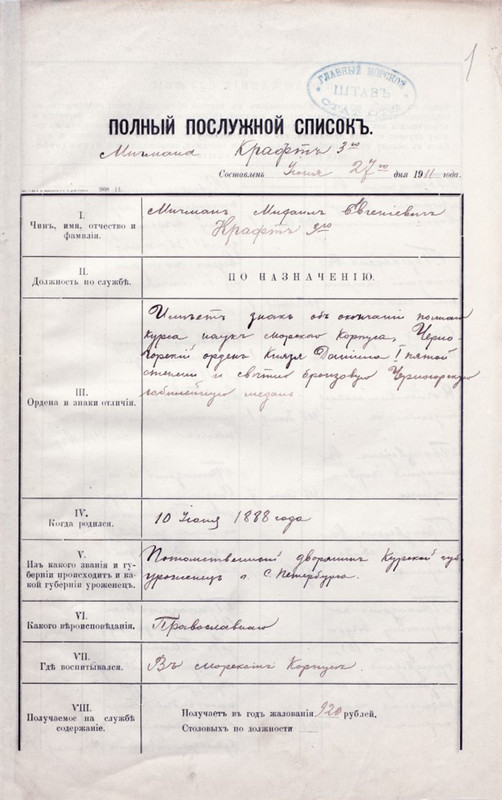 1
ГЛАВНЫЙ МОРСКОЙ
ШТАБЪ
ПОЛНЫЙ ПОСЛУЖНОЙ СПИСОКЪ.
Мичмана Крафтъ 3го
Составленъ Іюня 27го дня 1911 года.
I.
Чинъ, имя, отчество и
фамилія.
Мичманъ Михаилъ Евгеніевичъ
Крафтъ 3го
II.
Должность по службѣ.
ПО НАЗНАЧЕНІЮ.
III.
Ордена и знаки отличія.
Имѣетъ знакъ объ окончаніи полнаго
курса наукъ морского Корпуса, Черно-
горскій орденъ Князя Даніила I пятой
степени и свѣтло бронзовую Черногорскую
юбилейную медаль
IV.
Когда родился.
10 Іюня 1888 года
V.
Изъ какого званія и гу-
берніи происходитъ и ка-
кой губерніи уроженецъ.
Потомственный дворянинъ Курской губ.
уроженецъ г. С. Петербурга.
VI.
Какого вѣроисповѣданія.
Православнаго
VII.
Гдѣ воспитывался.
Въ морскомъ Корпусѣ.
VIII.
Получаемое на службѣ
содержаніе.
Получаетъ въ годъ жалованія 920 рублей.
Столовыхъ по должности